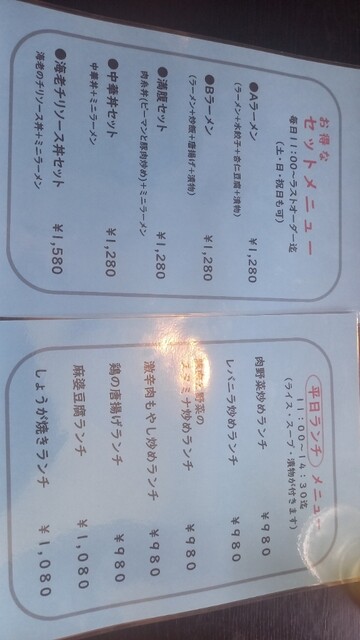 お得な
セットメニュー
毎日11:00~ラストオーダー迄
(土・日・祝日も可)
●Aラーメン ¥1,280
(ラーメン+水餃子+杏仁豆腐+漬物)
●Bラーメン ¥1,280
(ラーメン+炒飯+唐揚げ+漬物)
●満腹セット ¥1,280
肉糸丼(ピーマンと豚肉炒め)+ミニラーメン
●中華丼セット ¥1,280
中華丼+ミニラーメン
●海老チリソース丼セット ¥1,580
海老のチリソース丼+ミニラーメン
平日ランチメニュー
11:00~14:30迄
(ライス・スープ・漬物が付きます)
肉野菜炒めランチ ¥980
レバニラ炒めランチ ¥980
野菜の
スタミナ炒めランチ ¥980
激辛肉もやし炒めランチ ¥980
鶏の唐揚げランチ ¥980
麻婆豆腐ランチ ¥1,080
しょうが焼きランチ ¥1,080